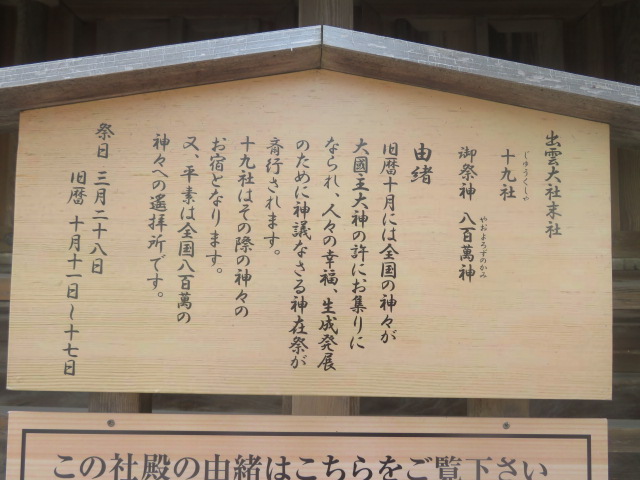 出雲大社末社
じゅうくしゃ
十九社
やおよろずのかみ
御祭神 八百萬神
由緒
旧暦十月には全国の神々が
大國主大神の許にお集りに
なられ、人々の幸福、生成発展
のために神議なさる神在祭が
斎行されます。
十九社はその際の神々の
お宿となります。
又、平素は全国八百萬の
神々への遥拝所です。
祭日 三月二十八日
旧暦 十月十一日〜十七日
この社殿の由緒はこちらをご覧下さい